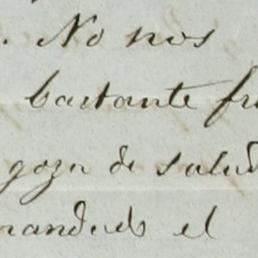 . No nos
bastante fr
goza de salud
mandeds el